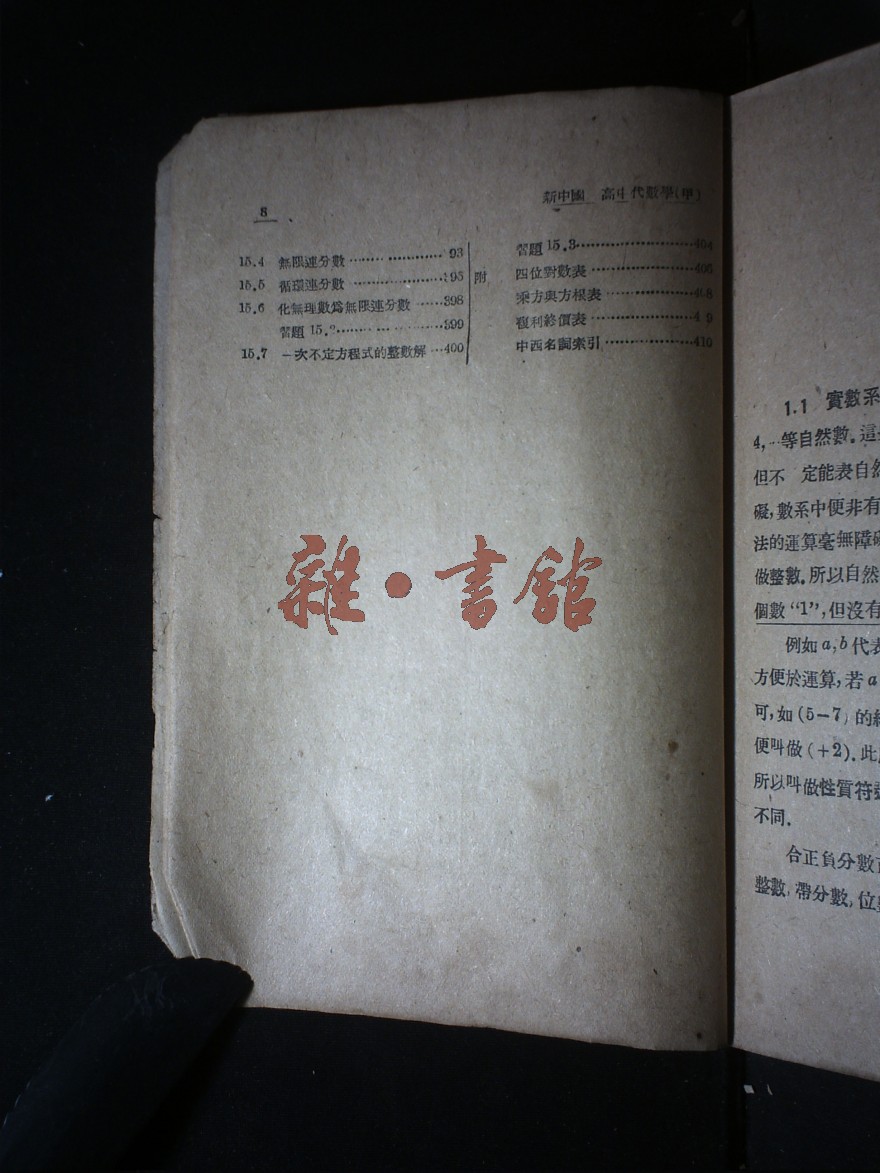 8
新中國 高中代數學(甲)
15.4 無限連分數 ………………… 93
15.5 循環連分數 ……………… 395
15.6 化無理數爲無限連分數 ……398
習題 15.2……………………399
15.7 一次不定方程式的整數解 …400
習題 15.3……………………404
附
四位對數表 …………………
乘方與方根表 ………………
複利終價表 …………………
中西名詞索引 ………………410
雜·書館
1.1 實數系
4,…等自然數.這
但不 定能表自然
礙,數系中便非有
法的運算毫無障礙
做整數.所以自然
個數“1”,但沒有
例如a,b代表
方便於運算,若a
可,如(5-7)的
便叫做(+2).此
所以叫做性質符
不同.
合正負分數
整數,帶分數,位